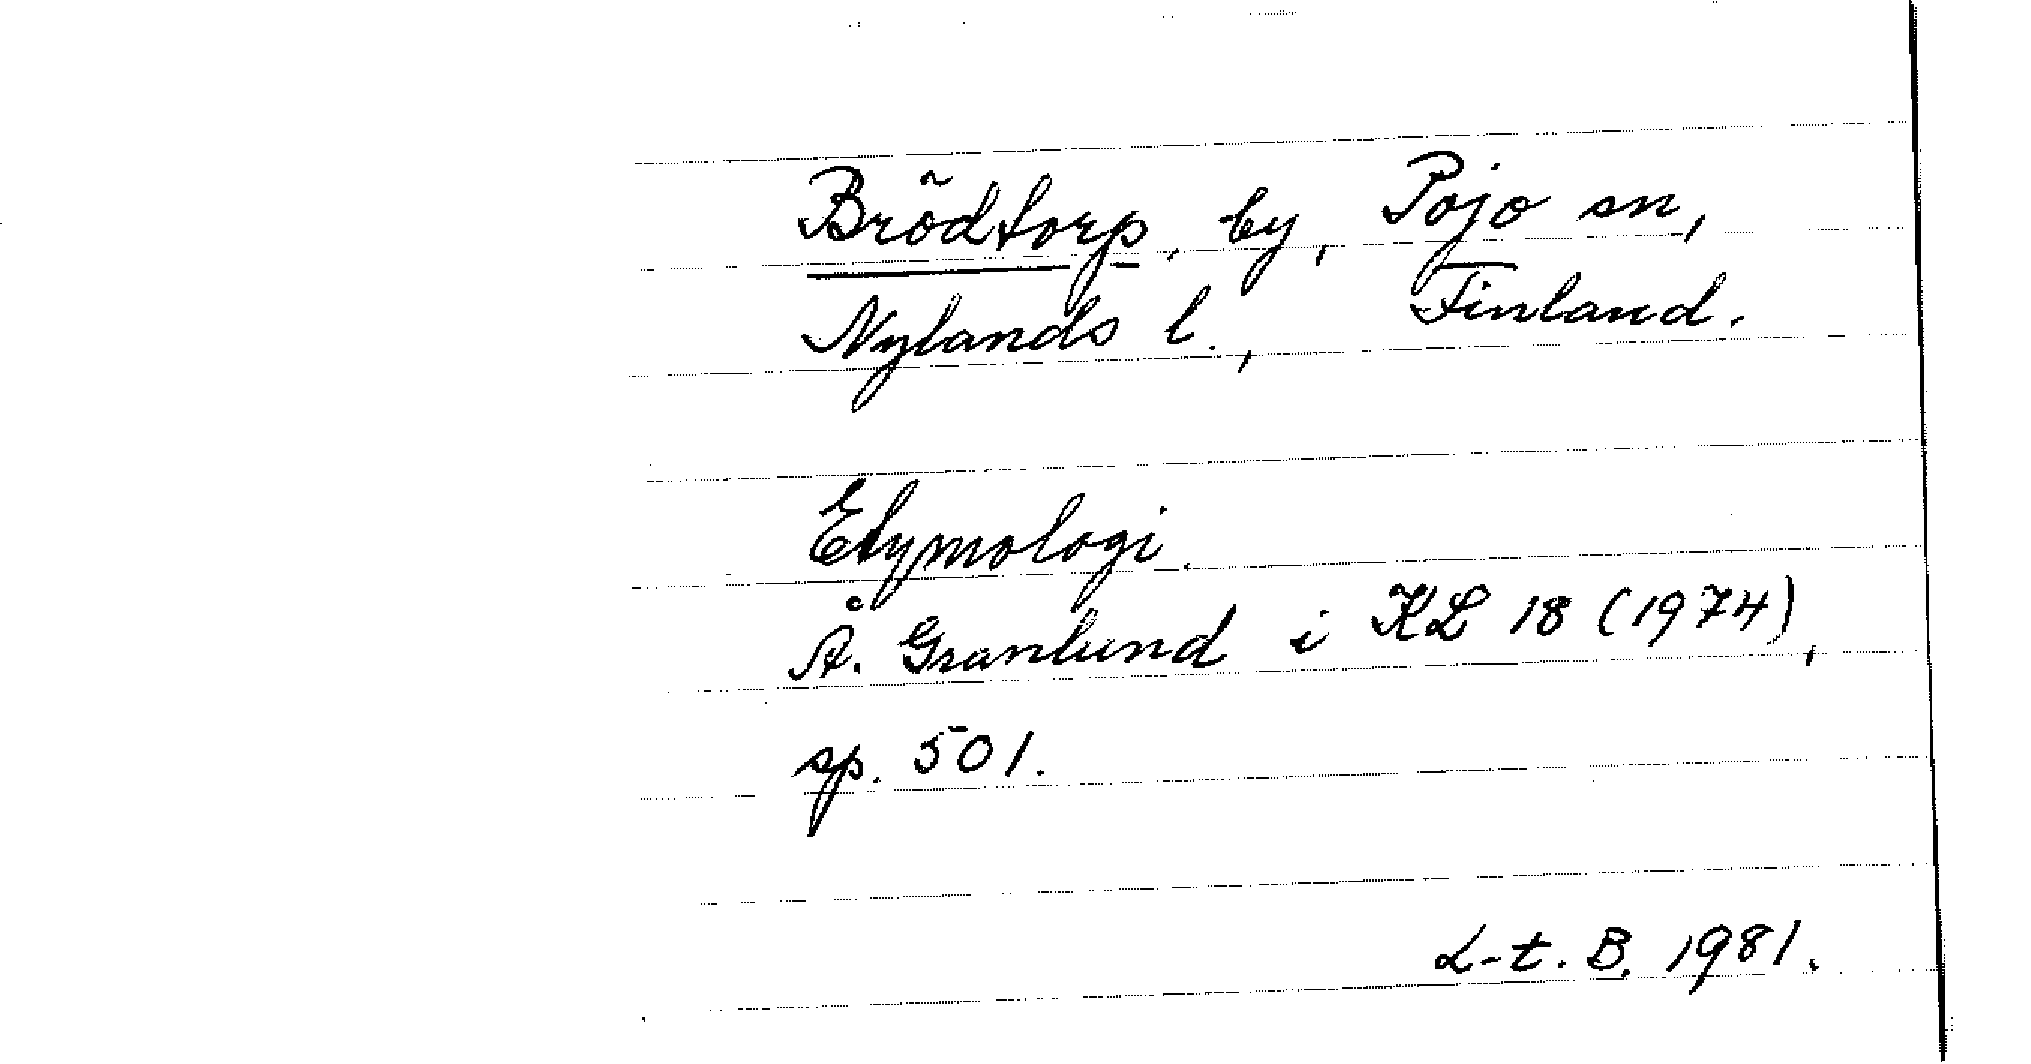 Brödtorp, by, Pojo sn,
Nylands l., Finland.
Etymologi.
Å. Granlund i KL 18 (1974),
sp. 501.
L-t. B. 1981.